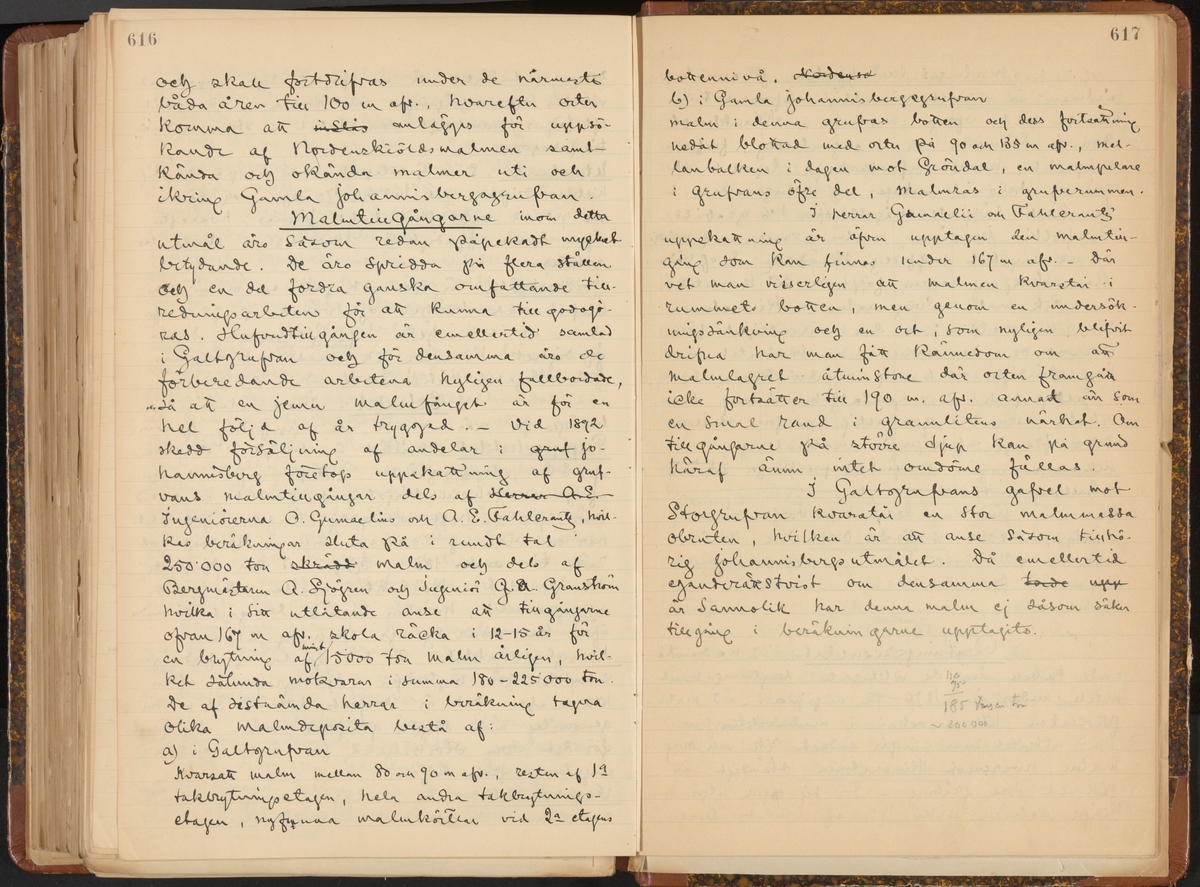 616
och skall fortdrifvas under de närmaste
båda åren till 100 m afv., hvarefter orter
komma att anlägges för uppsö-
kande af Nordenskiöldsmalmen samt
kända och okända malmer uti och
ikring Gamla Johannisbergsgrufvan.
Malmtillgångarne inom detta
utmål äro såsom redan påpekadt mycket
betydande. De äro spridda på flera ställen
och en del fordra ganska omfattande till-
redningsarbeten för att kunna tillgodogö-
ras. Hufvudtillgången är emellertid samlad
i Galtgrufvan och för densamma äro de
förberedande arbetena nyligen fullbordade,
så att en jemn malmfånget är för en
hel följd af år tryggad. – Vid 1892
skedd försäljning af andelar i gruf Jo-
hannisberg företogs uppskattning af gruf-
vans malmtillgångar dels af Herrar A.E.
Ingeniörerna O. Gumaelius och A. E. Fahlcrantz, hvil-
kas beräkningar sluta på i rundt tal
250'000 ton malm och dels af
Bergmästaren A. Sjögren och Ingeniör G.A. Granström
hvilka i sitt utlåtande anse att tillgångarne
ofvan 167 m afv. skola räcka i 12-15 år för
en brytning af minst 15000 ton malm årligen, hvil-
ket sålunda motsvarar i summa 180-225000 ton.
De af sistnämda herrar i beräkning tagna
olika malmdeposita bestå af:
a) i Galtgrufvan
Kvarsatt malm mellan 80 och 90 m afv., resten af 1a
takbrytningsetagen, hela andra takbrytnings-
etagen, nyfunna malmkörtlar vid 2a etagens
617
bottennivå. Nordensk
b) i Gamla Johannisbergsgrufvan
malm i denna grufvas botten och dess fortsättning
nedåt blottad med orter på 90 och 135 m afv., mel-
lanbalken i dagen mot Gröndal, en malmpelare
i grufvans öfre del, malmras i grufverummen.
I herrar Gumaelii och Fahlcrantz's
uppskattning är äfven upptagen den malmtill-
gång som kan finnas under 167 m afv. – Där
vet man visserligen att malmen kvarstår i
rummets botten, men genom en undersök-
ningssänkning och en ort, som nyligen blifvit
drifna har man fått kännedom om att
malmlagret åtminstone där orten framgått
icke fortsätter till 190 m. afv. annat än som
en smal rand i granulitens närhet. Om
tillgångarne på större djup kan på grund
häraf ännu intet omdöme fällas.
I Galtgrufvans gafvel mot
Storgrufvan kvarstår en stor malmmassa
obruten, hvilken är att anse såsom tillhö-
rig Johannisbergsutmålet. Då emellertid
eganderättstvist om densamma torde upp
är sannolik har denna malm ej såsom säker
tillgång i beräkningarne upptagits.
110
75
185 tusen ton
~ 200 000